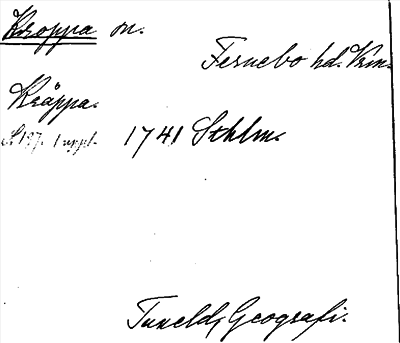 Kroppa sn.
Fernebo hd. Vrm.
Kråppa.
S 197. 1 uppl. 1741 Sthlm.
Tuneld, Geografi.